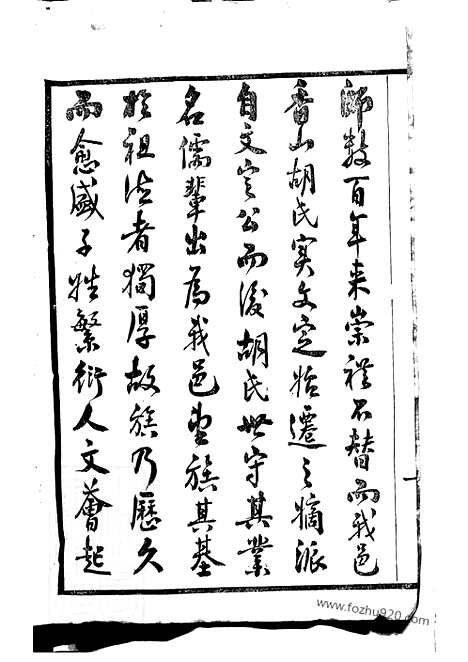 師數百年来崇禮不替而我邑
香山胡氏实文定始遷之嫡派
自文定公而後胡氏世守其業
名儒輩出為我邑望族其基
於祖法者獨厚故族乃歷久
而愈盛子姓繁衍人文薈起
www.fozhu920.com